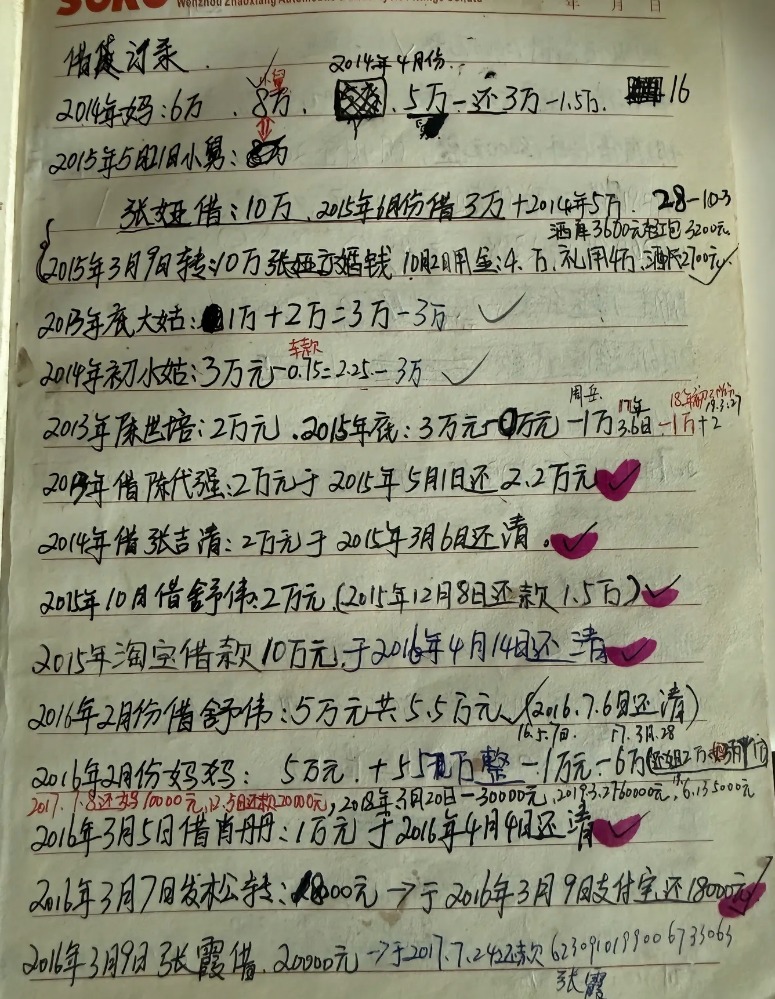 借贷记录.
2014年4月份.
2014年妈:6万. 8万. 5万-还3万-1.5万. 16
小舅
2015年5月21日小舅:
张娅借:10万. 2015年6月份借3万+2014年5万. 28-10-3
酒席3600元红包3200元
2015年3月9日转:10万张娅交婚钱 10月2日用金:4.万.礼用4万.酒席2700元
2013年底大姑:1万+2万=3万-3万
车款
2014年初小姑:3万元-0.75=2.25-3万
周岳. 17年 18年初 19.3.27
2013年陈世培:2万元.2015年底:3万元-0万元-1万 3.6日-1万+2
2013年借陈代强:2万元于2015年5月1日还2.2万元
2014年借张吉清:2万元于2015年3月6日还清.
2015年10月借舒伟:2万元.(2015年12月8日还款1.5万)
2015年淘宝借款10万元,于2016年4月14日还清
2016年2月份借舒伟:5万元共5.5万元,(2016.7.6日还清)
16.5.7日. 17.3月.28
2016年2月份妈妈: 5万元.+5万整-1万元-6万(还姐2万
2017.7.8还妈10000元,12.5日还款20000元,2018年3月20日-30000元.2019.3.27 60000元,6.13 5000元
2016年3月5日借肖丹丹:1万元于2016年4月4日还清
2016年3月7日发松转:18000元→于2016年3月9日支付宝还18000元
2016年3月9日张霞借.20000元→于2017.7.24还款6230910199006733063
张霞